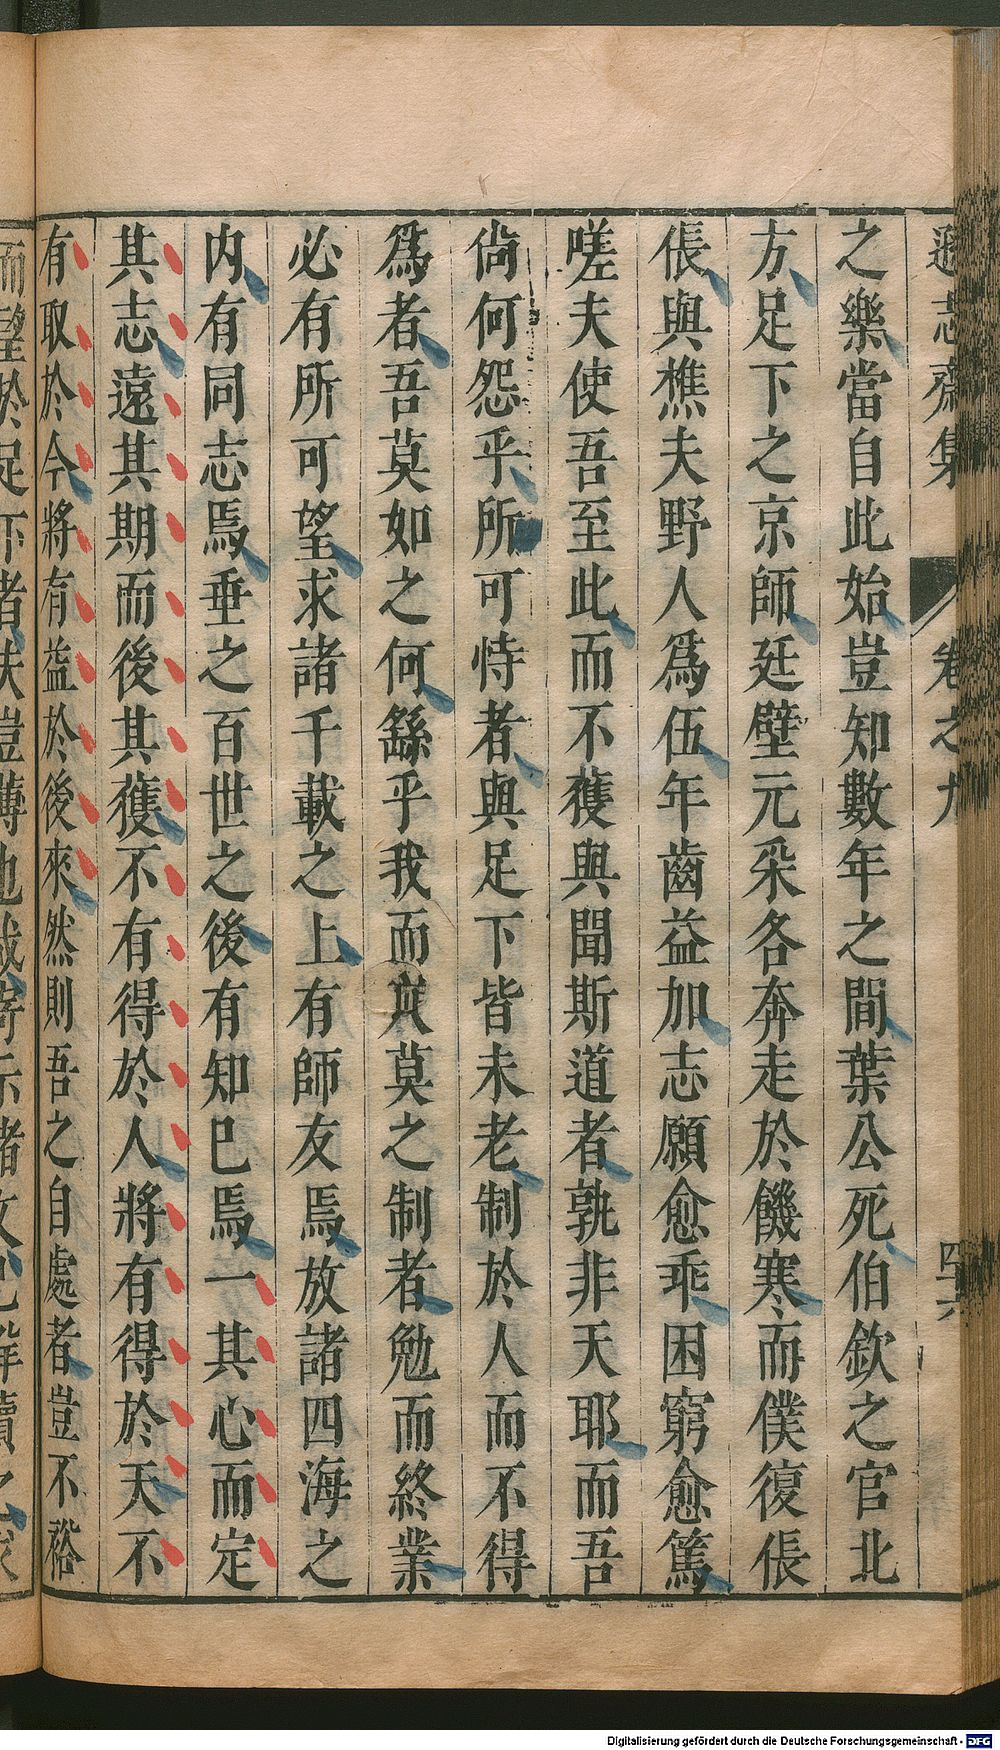 遜志齋集 卷之九 四六
之樂當自此始豈知數年之間葉公死伯欽之官北
方足下之京師廷璧元采各奔走於饑寒而僕復倀
倀與樵夫野人爲伍年齒益加志願愈乖困窮愈篤
嗟夫使吾至此而不獲與聞斯道者孰非天耶而吾
尙何怨乎所可恃者與足下皆未老制於人而不得
爲者吾莫如之何繇乎我而莫之制者勉而終業
必有所可望求諸千載之上有師友焉放諸四海之
内有同志焉垂之百世之後有知已焉一其心而定
其志遠其期而後其獲不有得於人將有得於天不
有取於今將有益於後來然則吾之自處者豈不裕
而望於足下者
Digitalisierung gefördert durch die Deutsche Forschungsgemeinschaft - DFG